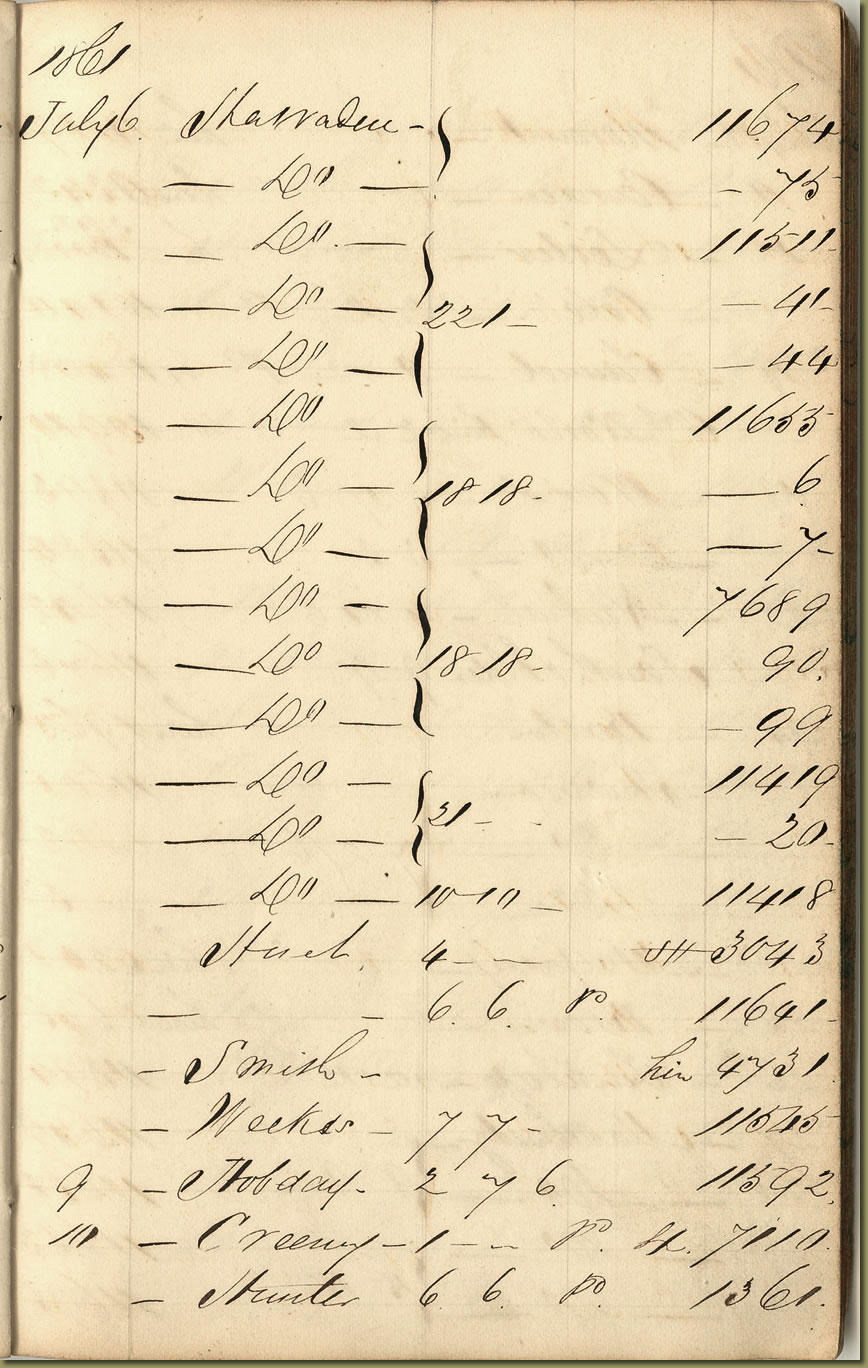 1861
July 6. Shawadeu - } 11674
— Do — - 75
— Do — 11511
— Do — 221 - - 41
— Do — - 44
— Do — 11655
— Do — 18 18 - — 6
— Do — — 7 -
— Do — 7689
— Do — 18 18 - 90.
— Do — - 99
— Do — 11419
— Do — 21 - - - 20 -
— Do — 10 10 - 11418
4 - - 3043
— - 6. 6. Po. 11641 -
- Smith - 4731
- Weekes - 7 7 - 11545
9 - Hobday - 2 7 6 11592.
10 - Creeny - 1 - - Po. St. 7110.
- Hunter 6. 6. Po. 1361.